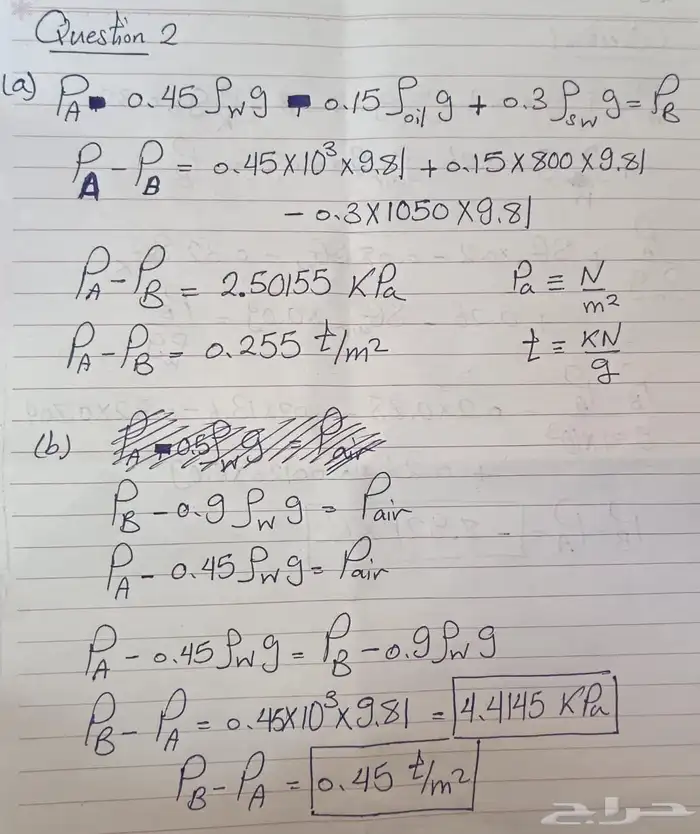 Question 2
(a) P_A - 0.45 ρ_w g - 0.15 ρ_oil g + 0.3 ρ_sw g = P_B
P_A - P_B = 0.45×10³×9.81 + 0.15×800×9.81
- 0.3×1050×9.81
P_A - P_B = 2.50155 KPa Pa ≡ N/m²
P_A - P_B = 0.255 t/m² t ≡ KN/g
(b) P_A - 0.5 ρ_w g = P_air
P_B - 0.9 ρ_w g = P_air
P_A - 0.45 ρ_w g = P_air
P_A - 0.45 ρ_w g = P_B - 0.9 ρ_w g
P_B - P_A = 0.45×10³×9.81 = 4.4145 KPa
P_B - P_A = 0.45 t/m²
حراج